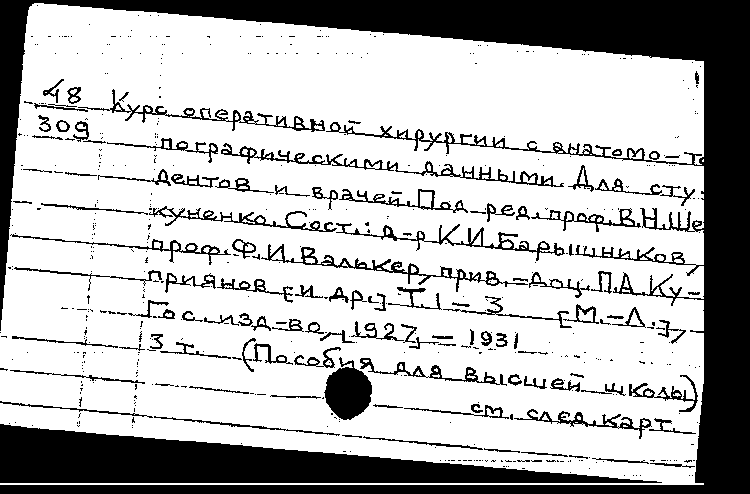 48 Курс оперативной хирургии с анатомо-то
309 пографическими данными. Для сту-
дентов и врачей. Под ред. проф. В.Н. Ше
куненко. Сост.: д-р К.И. Барышников,
проф. Ф.И. Валькер, прив.=доц. П.А. Ку-
приянов [и др.] Т. 1 - 3 [М.-Л.],
Гос. изд-во, [1927] - 1931
3 т. (Пособия для высшей школы)
см. след. карт.